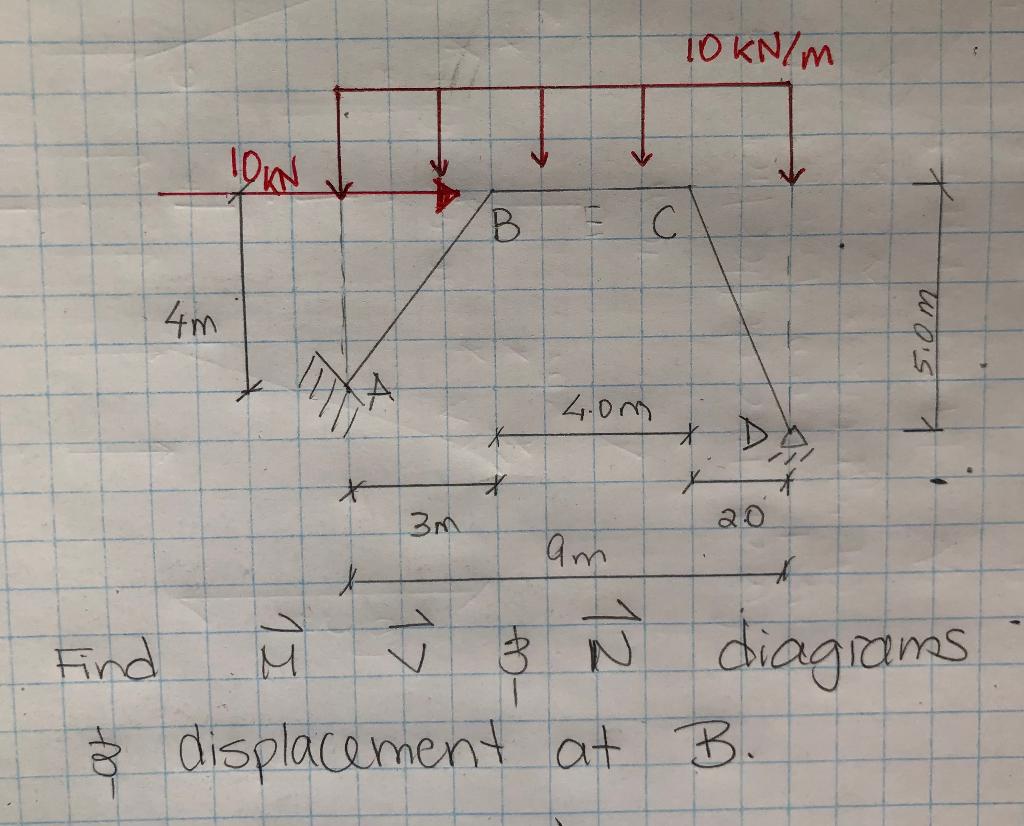 10 KN/m
10KN
B
C
4m
A
5.0m
4.0m
D
3m
2.0
9m
Find M V & N diagrams
& displacement at B.